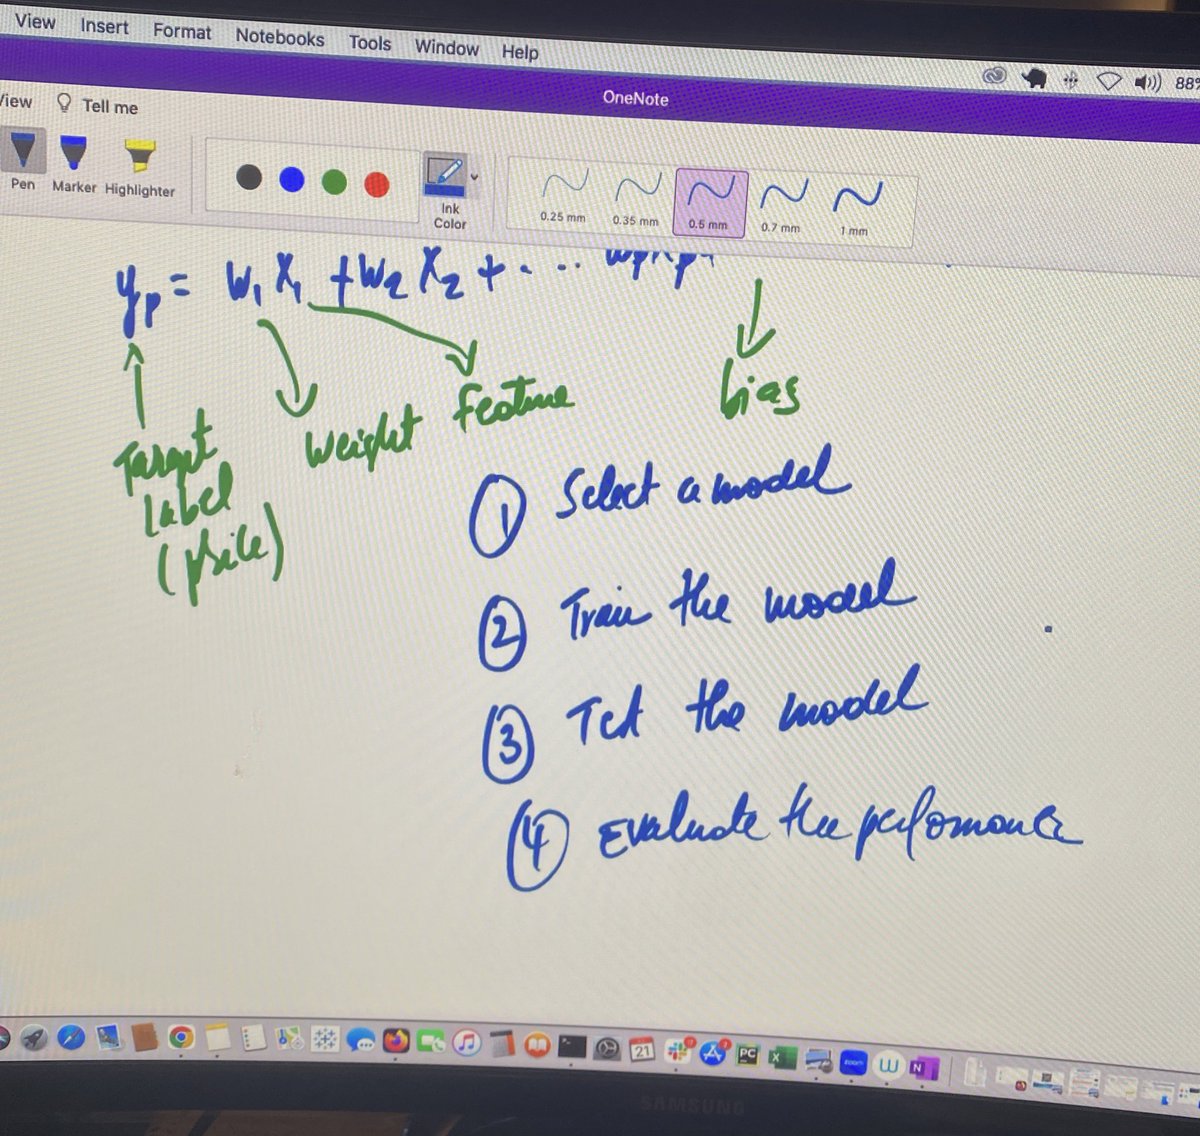 View Insert Format Notebooks Tools Window Help
88%
OneNote
View Tell me
Pen Marker Highlighter
Ink Color
0.25 mm 0.35 mm 0.5 mm 0.7 mm 1 mm
yp = w1 x1 + w2 x2 + ...
Target Label (price)
Weight
feature
bias
① Select a model
② Train the model
③ Test the model
④ Evaluate the perfomance
21
PC
X
zoom
W
N
SAMSUNG